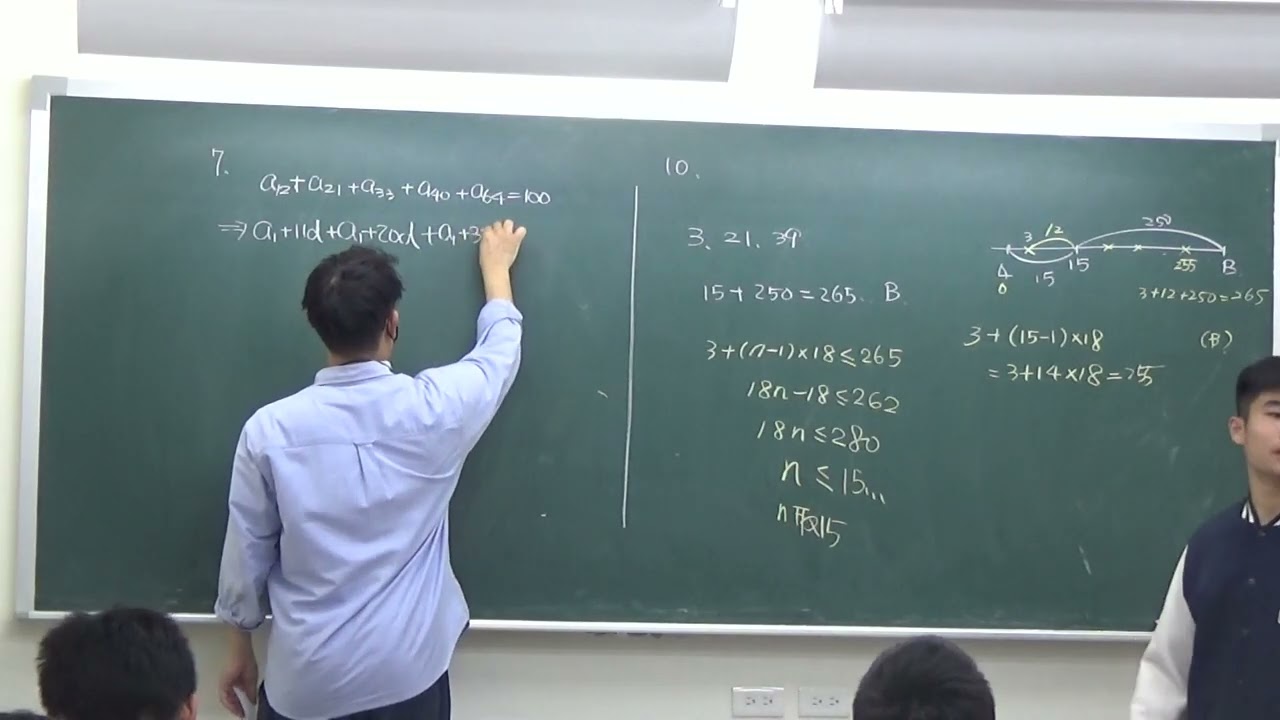 7.
a₁₂+a₂₁+a₃₃+a₄₀+a₆₄=100
⇒a₁+11d+a₁+20d+a₁+3
10.
3、21、39
15+250=265 B
3+(n-1)×18≤265
18n-18≤262
18n≤280
n≤15...
n取15
250
3 12
15
A 15 255 B
0
3+12+250=265
3+(15-1)×18 (B)
=3+14×18=255